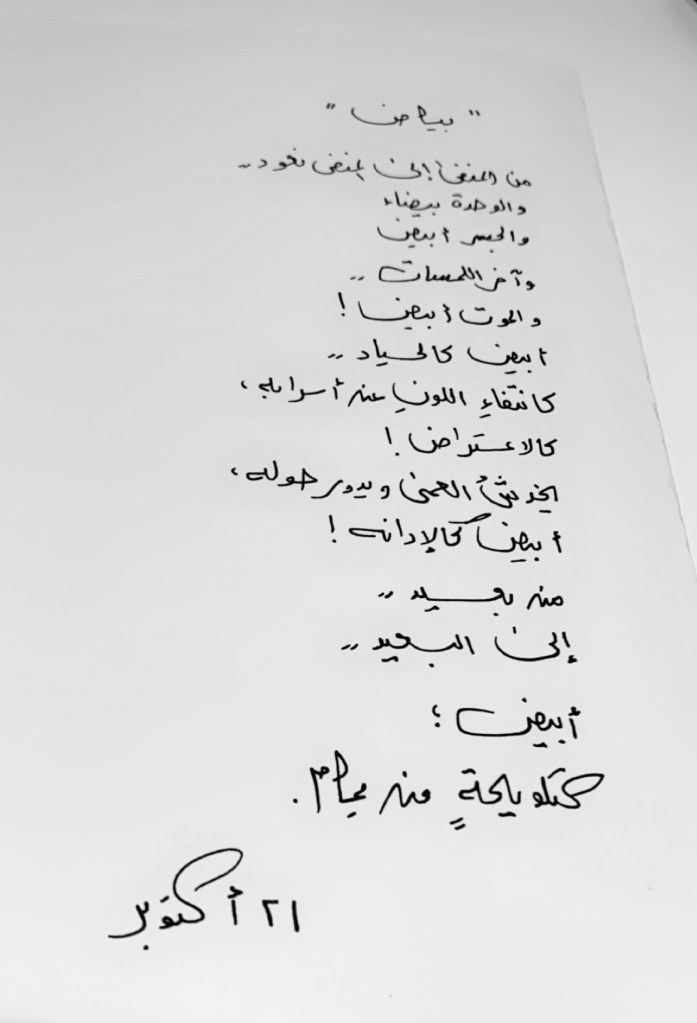 " بياض "
من المنفى إلى المنفى نعود ..
والوحدة بيضاء
والجسر أبيض
وآخر اللمسات ..
والموت أبيض !
أبيض كالحياد ..
كانتفاءِ اللونِ عن أسرابه ،
كالاعتراض !
يخدشُ العمى ويدور حوله ،
أبيض كالإدانه !
من بعيد ..
إلى البعيد ..
أبيض ؛
كتلويحةٍ من
٢١ أكتوبر